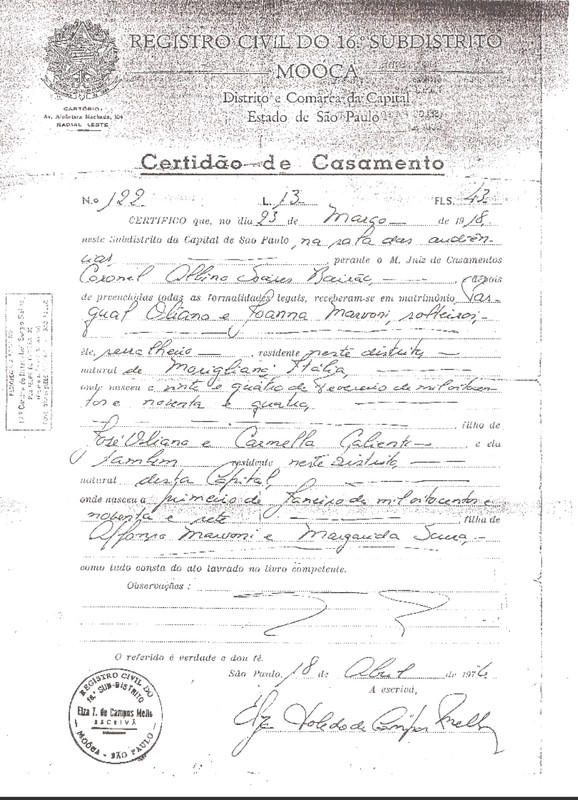 REGISTRO CIVIL DO 16.º SUBDISTRITO
MOÓCA
Distrito e Comarca da Capital
Estado de São Paulo
CARTÓRIO:
Av. Alcântara Machado,
RADIAL LESTE
Certidão de Casamento
N.o 122 L. 13 FLS. 43
CERTIFICO que, no dia 23 de Março de 1918,
neste Subdistrito da Capital de São Paulo, na sala das audiên-
cias perante o M. Juiz de Casamentos
Coronel Albino Soares Bairão, depois
de preenchidas todas as formalidades legais, receberam-se em matrimônio Pas-
qual Oliano e Joanna Marvoni, solteiros,
êle, serralheiro, residente neste distrito
natural de Marigliano Itália,
onde nasceu a vinte e quatro de Fevereiro de mil oitocen-
tos e noventa e quatro,
filho de
José Oliano e Carmella Caliente e ela
também residente neste Distrito,
natural desta Capital
onde nasceu a primeiro de Janeiro de mil oitocentos e
noventa e sete filha de
Affonso Marvoni e Margarida
como tudo consta do ato lavrado no livro competente.
Observações :
O referido é verdade e dou fé.
São Paulo, 18 de Abril de 1976
A escrivã,
Elza Toledo de Campos Mello
REGISTRO CIVIL DO
16.º SUB-DISTRITO
Elza T. de Campos Mello
ESCRIVÃ
MOÓCA - SÃO PAULO